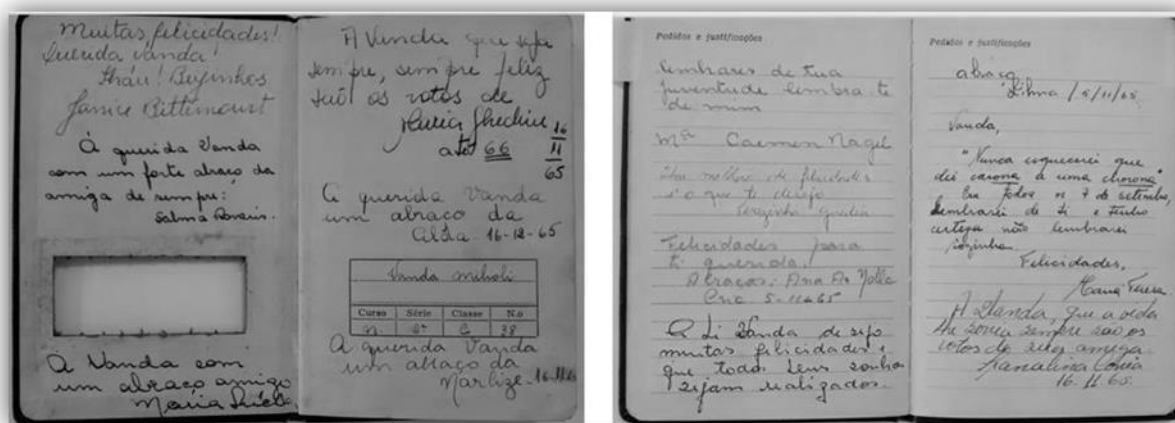 Muitas felicidades!
Querida Vanda!
Tháu! Beijinhos
Janice Bittencourt
À querida Vanda
com um forte abraço da
amiga de sempre:
Salma
À Vanda com
um abraço amigo
Maria
À Vanda que seja
sempre, sempre feliz
são os votos de
até 66
16
11
65
À querida Vanda
um abraço da
Alda 16-12-65
Vanda
Curso Série Classe N.o
38
À querida Vanda
um abraço da
Marlize
Pedidos e justificações
lembrares de tua
juventude lembra-te
de mim
Mª Carmen Nagel
Um milhão de felicidades
é o que te desejo
Terezinha
Felicidades para
ti querida.
Abraços: Ana
5-11-65
A ti Vanda desejo
muitas felicidades e
que todos teus sonhos
sejam realizados.
Pedidos e justificações
abraço
Dilma / 5/11/65
Vanda,
"Nunca esquecerei que
dei carona a uma chorona"
Em todos os 7 de setembro,
lembrarei de ti e tenho
certeza não lembrarei
sozinha.
Felicidades,
Maria Teresa
À Vanda, que a vida
lhe sorria sempre são os
votos de sua amiga
16.11.65